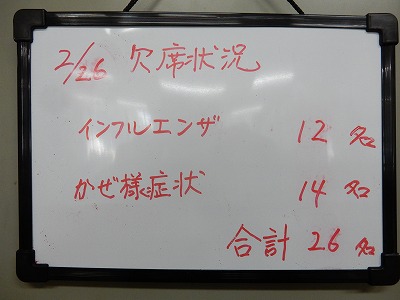 2/26 欠席状況
インフルエンザ 12名
かぜ様症状 14名
合計 26名